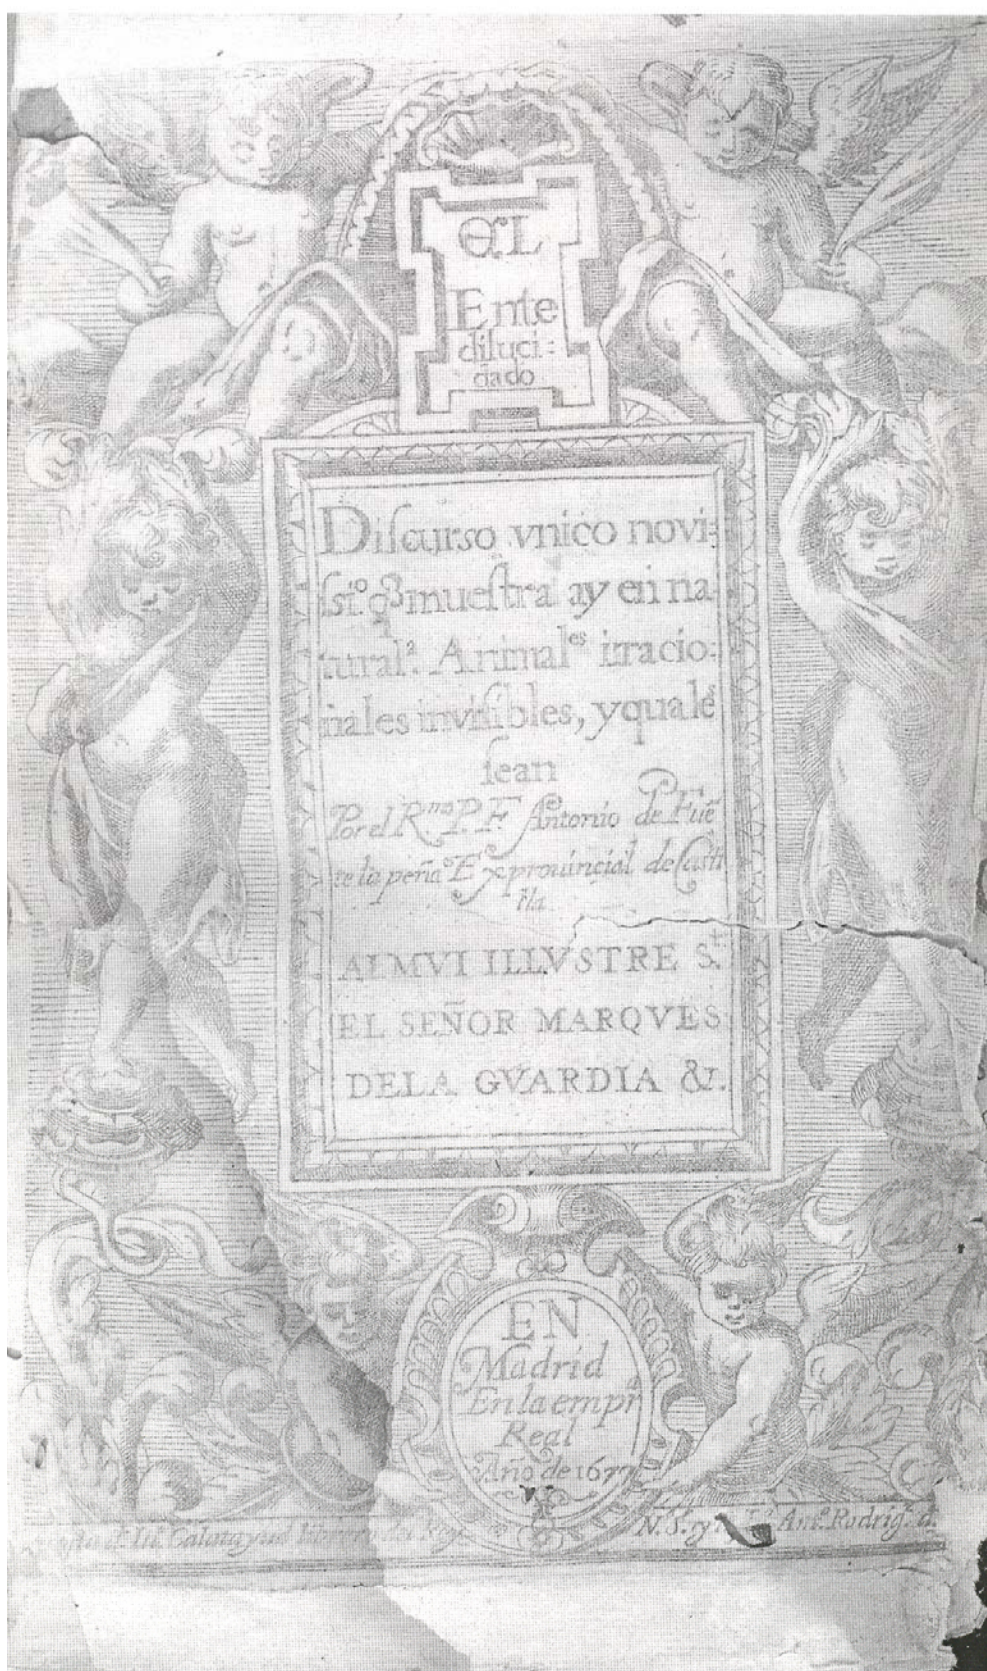 EL
Ente
diluci:
dado
Discurso vnico novi:
ssi.º q̃ muestra ay en na
tural.ª Animal.es irracio:
nales invisibles, y quale
sean
Por el R.mo P. F. Antonio de Fuẽ
te la peña Exprouincial de Casti
lla
AL MVI ILLVSTRE S.r
EL SEÑOR MARQVES
DE LA GVARDIA &.
EN
Madrid
En la empr
Real
Año de 1677
Calatayud N. S. y Ant.º Rodrig.